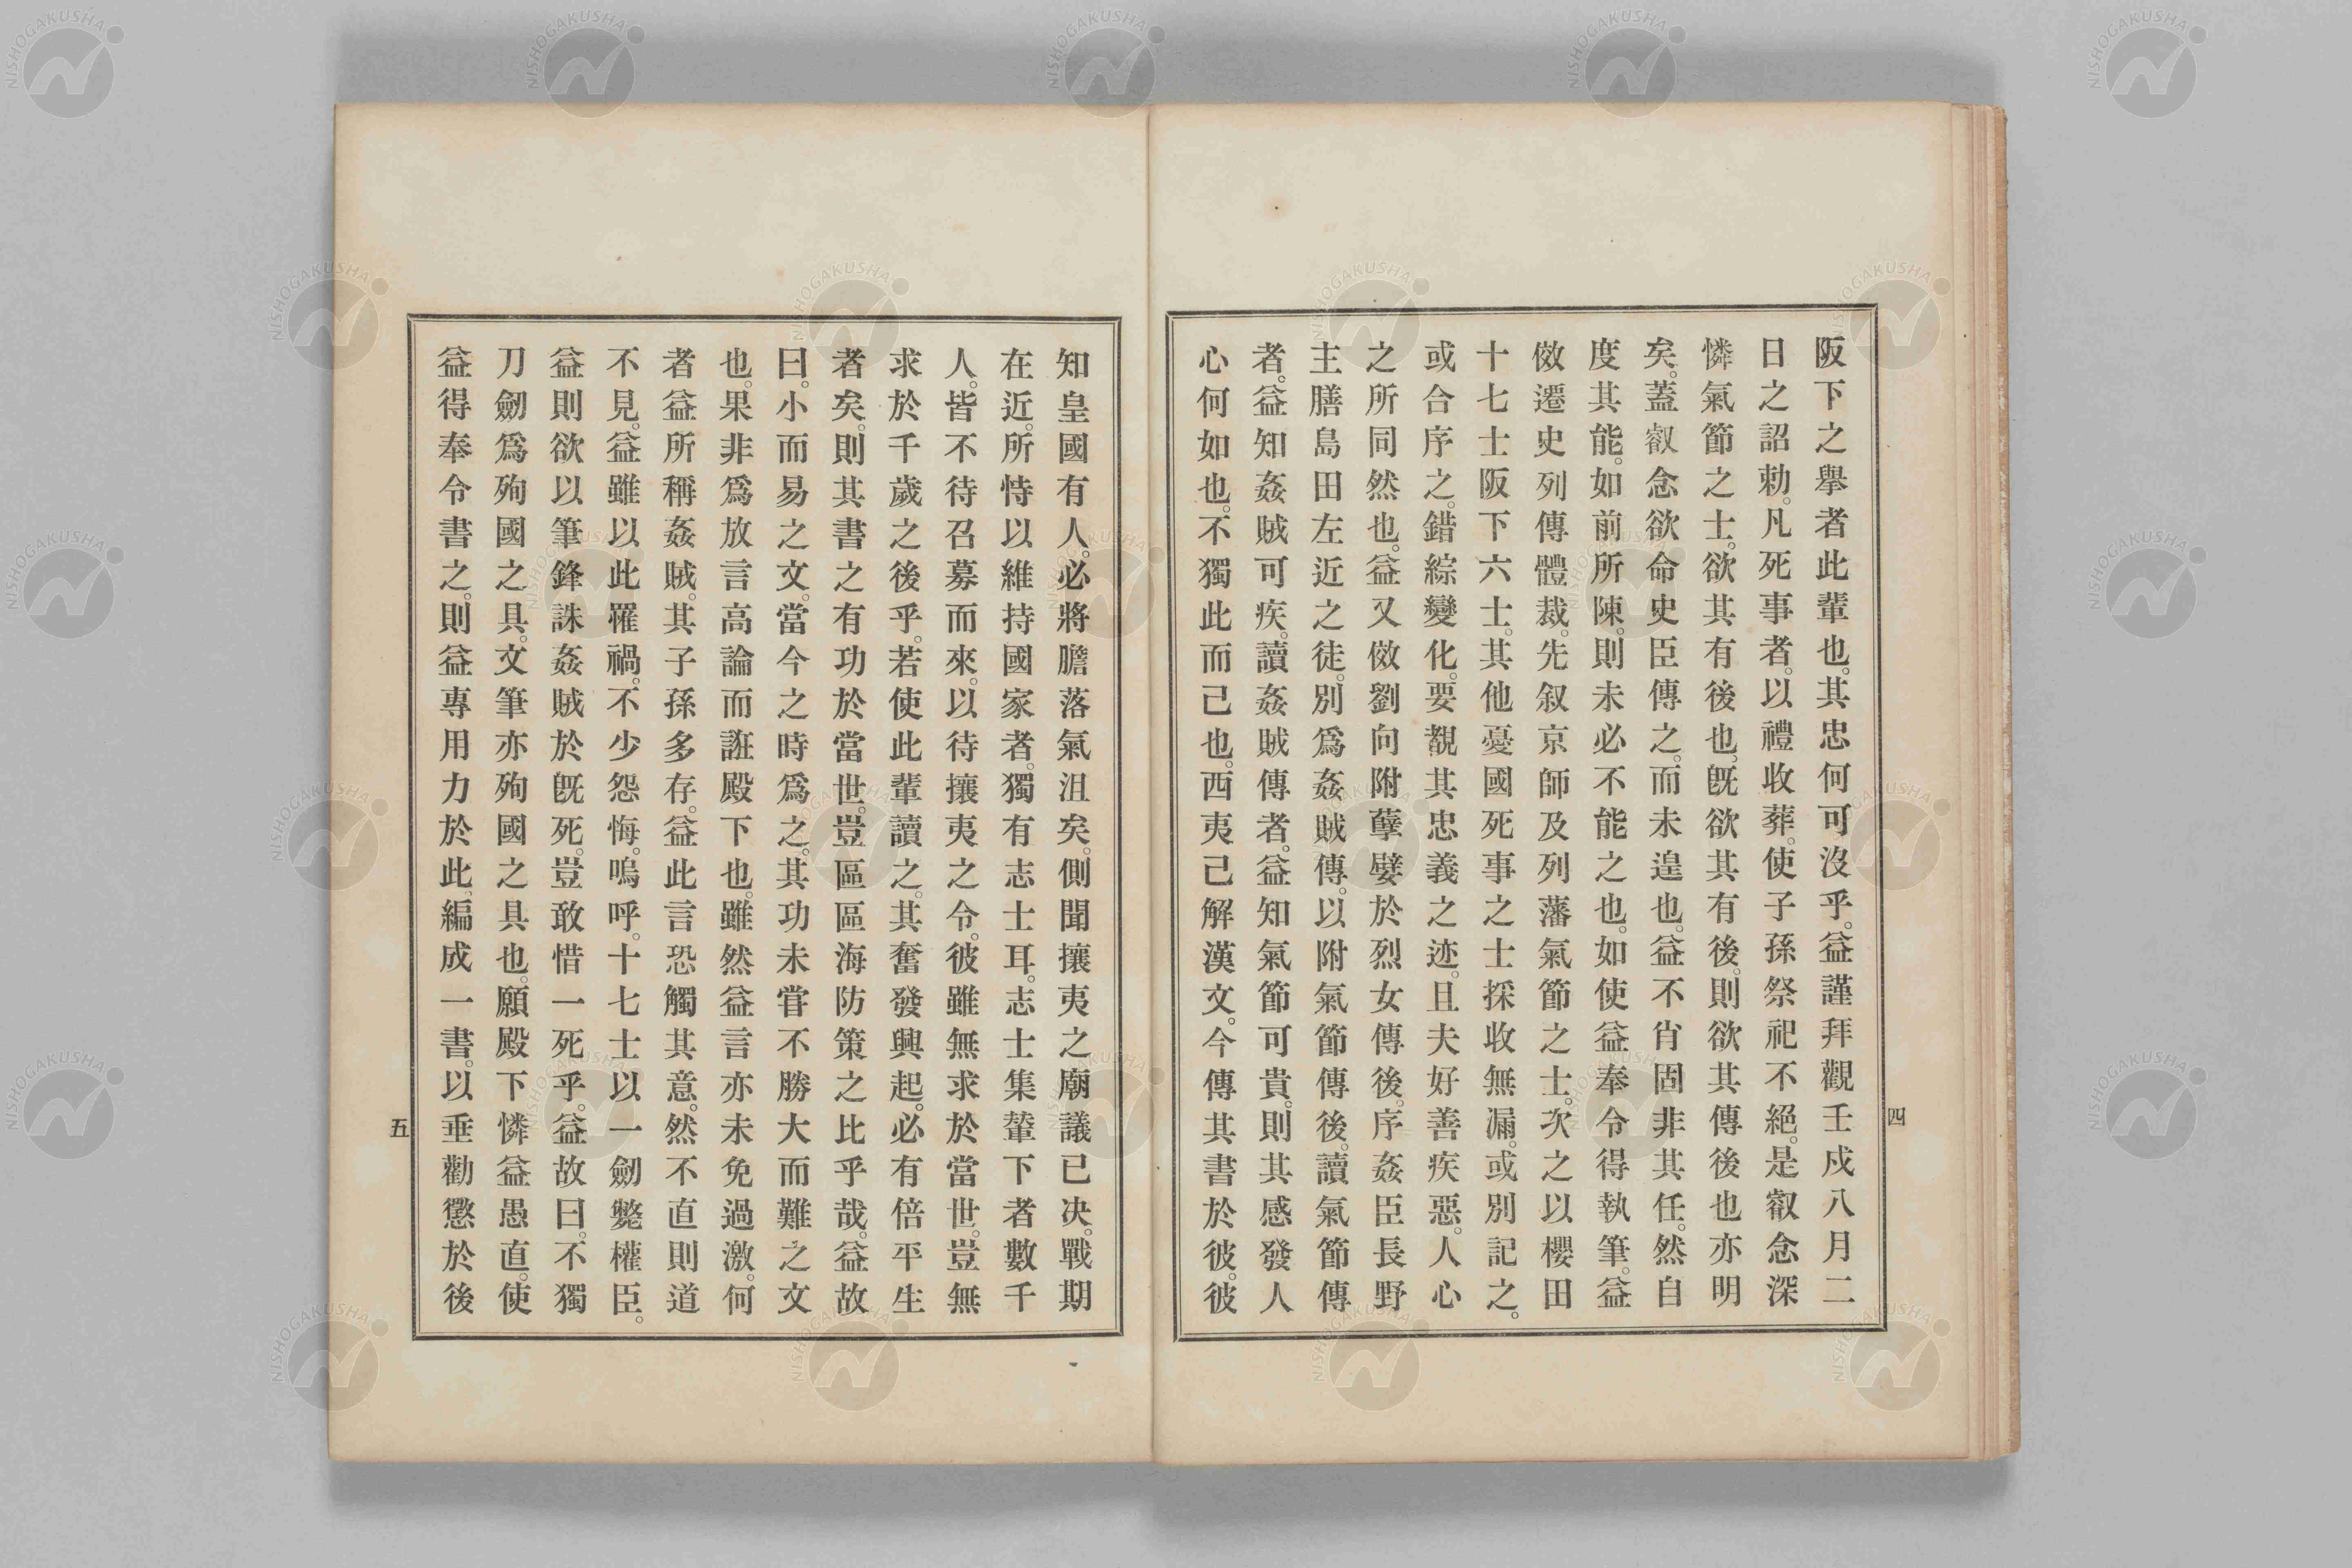 阪下之擧者此輩也。其忠何可沒乎。益謹拜觀壬戍八月二
日之詔勅。凡死事者。以禮收葬。使子孫祭祀不絕。是叡念深
憐氣節之士。欲其有後也、旣欲其有後。則欲其傳後也亦明
矣。蓋叡念欲命史臣傳之。而未遑也。益不肖固非其任。然自
度其能。如前所陳。則未必不能之也。如使益奉令得執筆。益
倣遷史列傳體裁。先叙京師及列藩氣節之士。次之以櫻田
十七士阪下六士。其他憂國死事之士採收無漏。或別記之。
或合序之。錯綜變化。要覩其忠義之迹。且夫好善疾惡。人心
之所同然也。益又倣劉向附孽嬖於烈女傳後。序姦臣長野
主膳島田左近之徒。別爲姦賊傳。以附氣節傳後。讀氣節傳
者。益知姦賊可疾。讀姦賊傳者。益知氣節可貴。則其感發人
心何如也。不獨此而己也。西夷己解漢文。今傳其書於彼。彼
四
知皇國有人。必將膽落氣沮矣。側聞攘夷之廟議已决。戰期
在近。所恃以維持國家者。獨有志士耳。志士集輦下者數千
人。皆不待召募而來。以待攘夷之令。彼雖無求於當世。豈無
求於千歲之後乎。若使此輩讀之。其奮發興起。必有倍平生
者矣。則其書之有功於當世。豈區區海防策之比乎哉。益故
曰。小而易之文。當今之時爲之。其功未甞不勝大而難之文
也。果非爲放言高論而誑殿下也。雖然益言亦未免過激。何
者益所稱姦賊。其子孫多存。益此言恐觸其意。然不直則道
不見。益雖以此罹禍。不少怨悔。嗚呼。十七士以一劒斃權臣。
益則欲以筆鋒誅姦賊於旣死。豈敢惜一死乎。益故曰。不獨
刀劒爲殉國之具。文筆亦殉國之具也。願殿下憐益愚直。使
益得奉令書之。則益專用力於此、編成一書。以垂勸懲於後
五
NISHOGAKUSHA